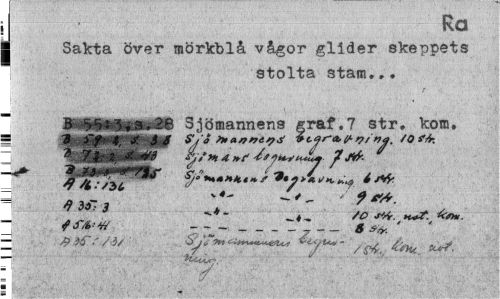 Ra
Sakta över mörkblå vågor glider skeppets
stolta stam...
B 55:3, s. 28 Sjömannens graf. 7 str. kom.
B 59:2, s. 38 Sjömannens begravning. 10 str.
B 72:2, s. 43 Sjömans begravning 7 str.
B 73:2, s. 135 Sjömannens Begravning 6 str.
A 16:136 -"- -"- 9 str.
A 35:3 -"- -"- 10 str., not., kom.
A 516:41 - - - - - - - - - 8 str.
A 35:131 Sjömannens begrav-
ning. 1 str., kom. not.